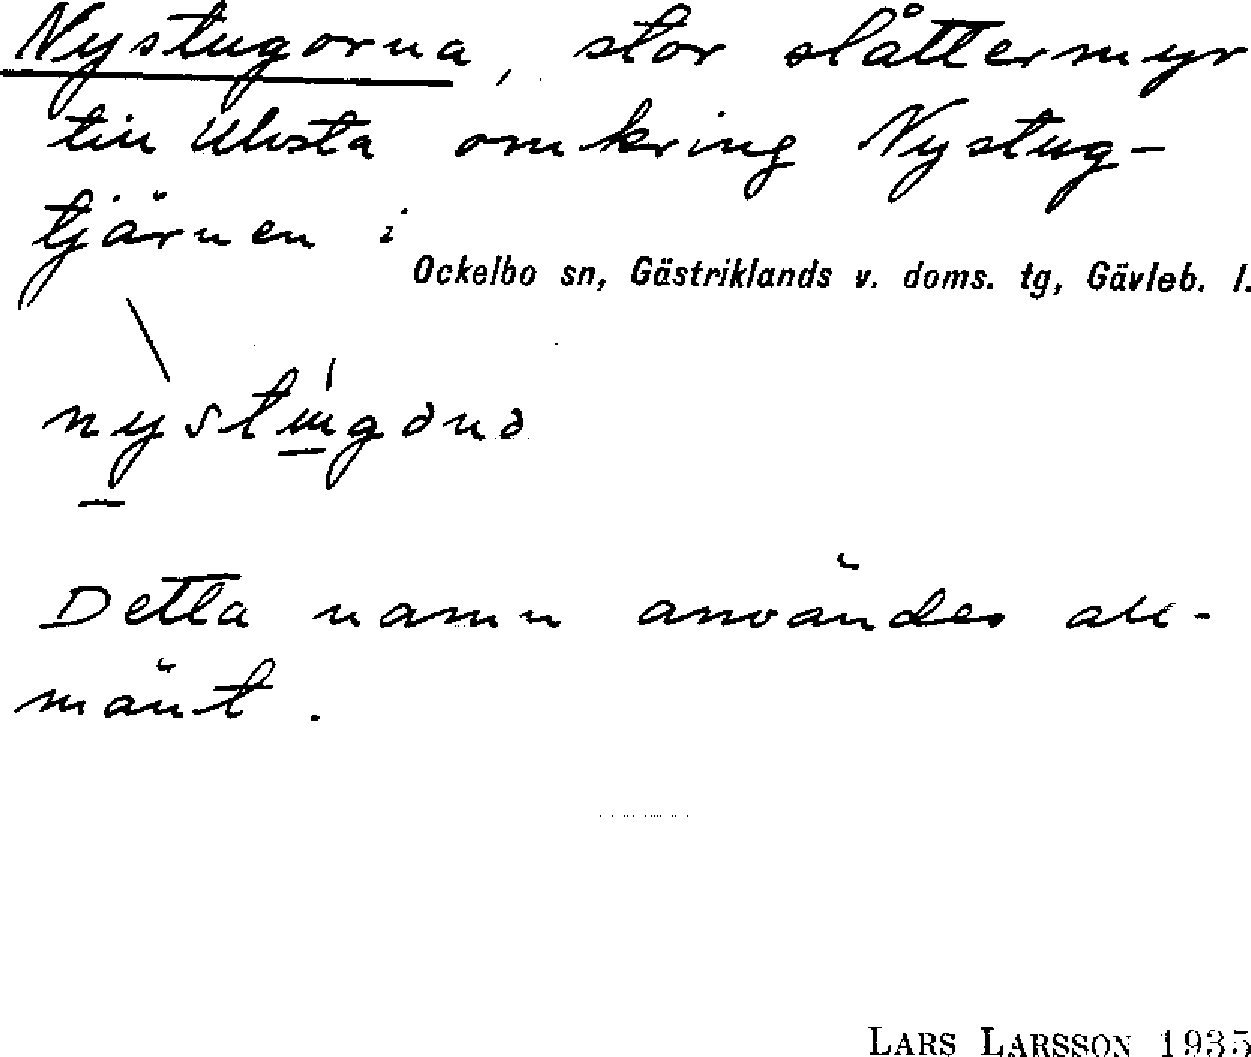 Nystugorna, stor slåttermyr
till Ulvsta omkring Nystug-
tjärnen i
Ockelbo sn, Gästriklands v. doms. tg, Gävleb. l.
Detta namn användes all-
mänt.
LARS LARSSON 1935